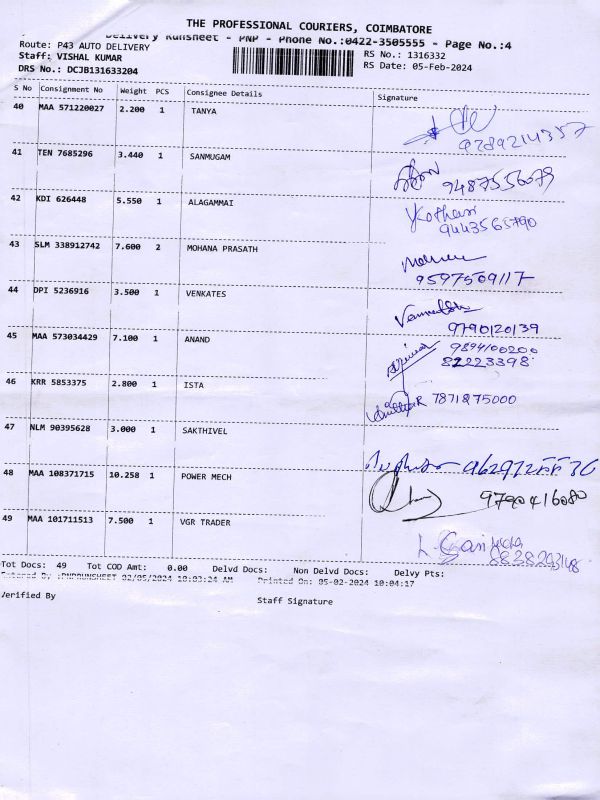 THE PROFESSIONAL COURIERS, COIMBATORE
Delivery Runsheet - PNP - Phone No.:0422-3505555 - Page No.:4
Route: P43 AUTO DELIVERY RS No.: 1316332
Staff: VISHAL KUMAR RS Date: 05-Feb-2024
DRS No.: DCJB131633204
S No Consignment No Weight PCS Consignee Details Signature
40 MAA 571220027 2.200 1 TANYA
9789214357
41 TEN 7685296 3.440 1 SANMUGAM
9487556079
42 KDI 626448 5.550 1 ALAGAMMAI Kothari
9443565790
43 SLM 338912742 7.600 2 MOHANA PRASATH
9597509117
44 DPI 5236916 3.500 1 VENKATES
9790120139
45 MAA 573034429 7.100 1 ANAND 9894100200
82223398
46 KRR 5853375 2.800 1 ISTA 7871875000
47 NLM 90395628 3.000 1 SAKTHIVEL
48 MAA 108371715 10.258 1 POWER MECH 9790416080
49 MAA 101711513 7.500 1 VGR TRADER
Tot Docs: 49 Tot COD Amt: 0.00 Delvd Docs: Non Delvd Docs: Delvy Pts:
Entered By :PNPRUNSHEET 02/05/2024 10:03:24 AM Printed On: 05-02-2024 10:04:17
Verified By Staff Signature